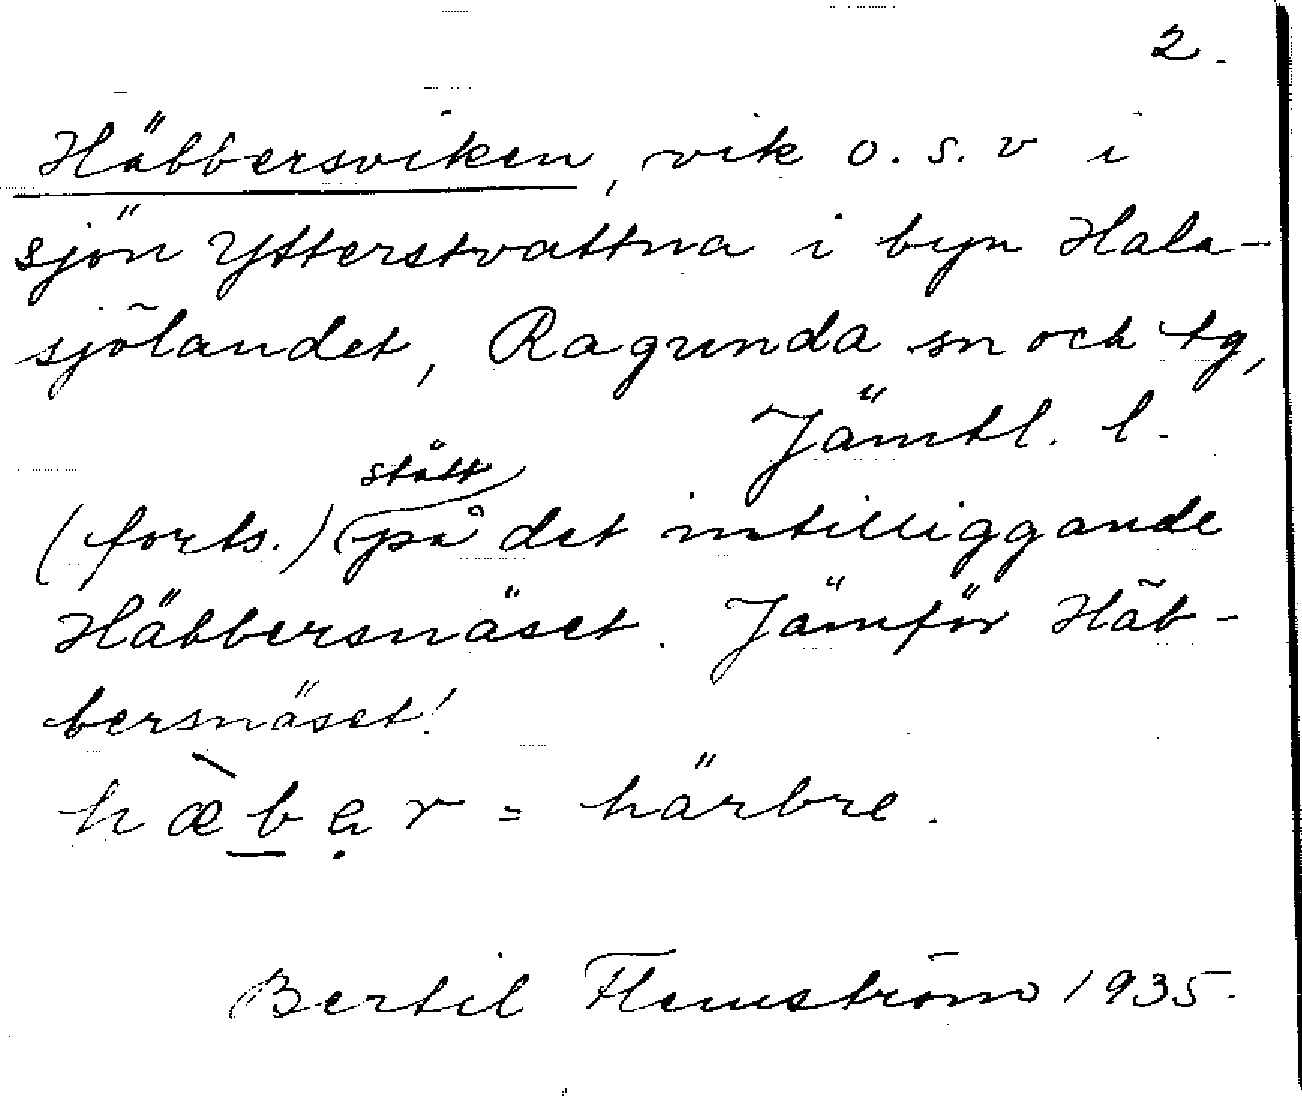 2.
Häbbersviken, vik o.s.v i
sjön Ytterstvattna i byn Hala-
sjölandet, Ragunda sn och tg,
Jämtl. l.
stått
(forts.) på det intilliggande
Häbbersnäset. Jämför Häb-
bersnäset!
hæ̀b̲ẹr = härbre.
Bertil Flemström 1935.